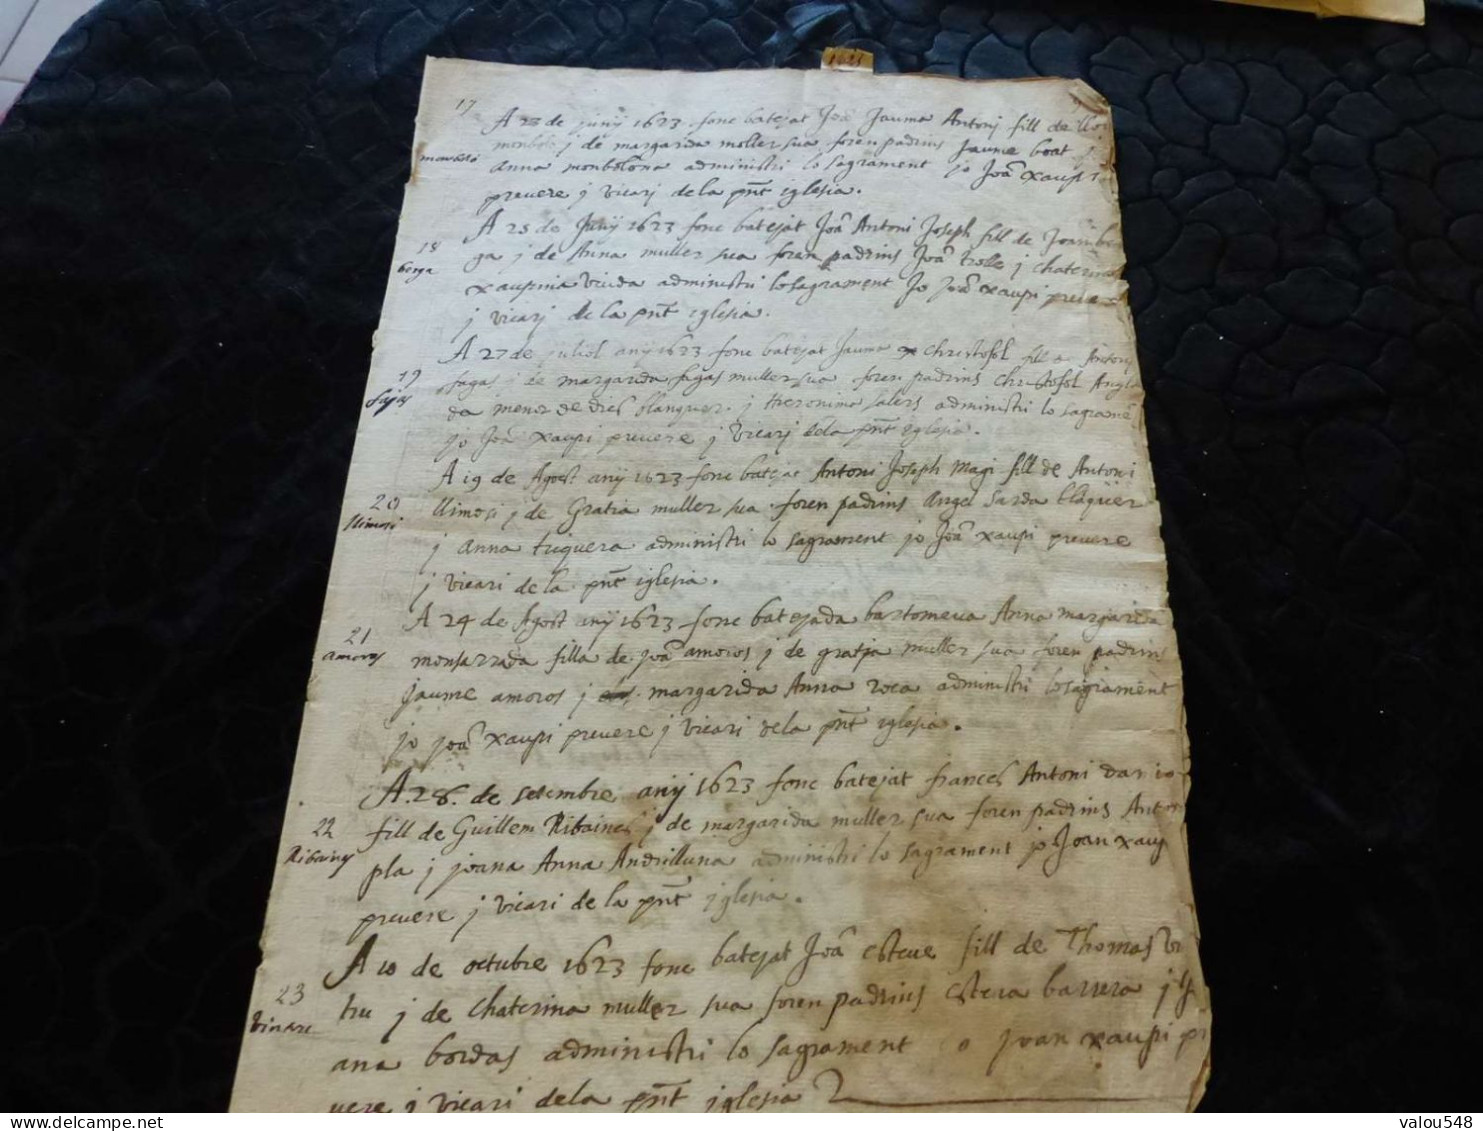 1623
17
A 23 de juny 1623 fonc batejat Joã Jauma Antonj fill de
monbolo j de margarida moller sua foren padrins Jaume boat
monbolo
Anna monbolona administri lo sagrament jo Joã xaupi
prevere j vicarj de la pñt iglesia.
A 25 de Juny 1623 fonc batejat Joã Antoni Joseph fill de Joan ber
18
berga
ga j de Anna muller sua foren padrins Joã trolle j chaterina
xaupina viuda administri lo sagrament Jo Joã xaupi preve
j vicarj de la pñt iglesia.
A 27 de juliol anij 1623 fonc batejat Jauma christofol fill Antonj
19
fajas
fagas j de margarida fagas muller sua foren padrins christofol Angla
da menor de dies blanquer j Hieronima salers administri lo sagramẽ
jo Joã xaupi prevere j vicarj dela pñt iglesia.
A 19 de Agost anij 1623 fonc batejat Antoni Joseph Magi fill de Antoni
20
llimosi
llimosi j de Gratia muller sua foren padrins Angel Sarda
j Anna triquera administri lo sagrament jo Joã xaupi prevere
j vicari de la pñt iglesia.
A 24 de Agost anij 1623 fonc batejada bartomeva Anna margarida
21
amoros
monsarrada filla de joã amoros j de gratja muller sua foren padrins
Jaume amoros j margarida Anna roca administri lo sagrament
jo joã xaupi prevere j vicari dela pñt iglesia.
A .28. de setembre anij 1623 fonc batejat frances Antoni
22
Ribainy
fill de Guillem Ribaines j de margarida muller sua foren padrins Anton
pla j joana Anna Andrilluna administri lo sagrament jo Joan xaup
prevere j vicari de la pñt iglesia.
A 10 de octubre 1623 fonc batejat Joã esteve fill de Thomas vi
23
tru j de chaterina muller sua foren padrins estera barrera j
ana bordas administri lo sagrament jo Joan xaupi pr
vere j vicari dela pñt iglesia
valou548